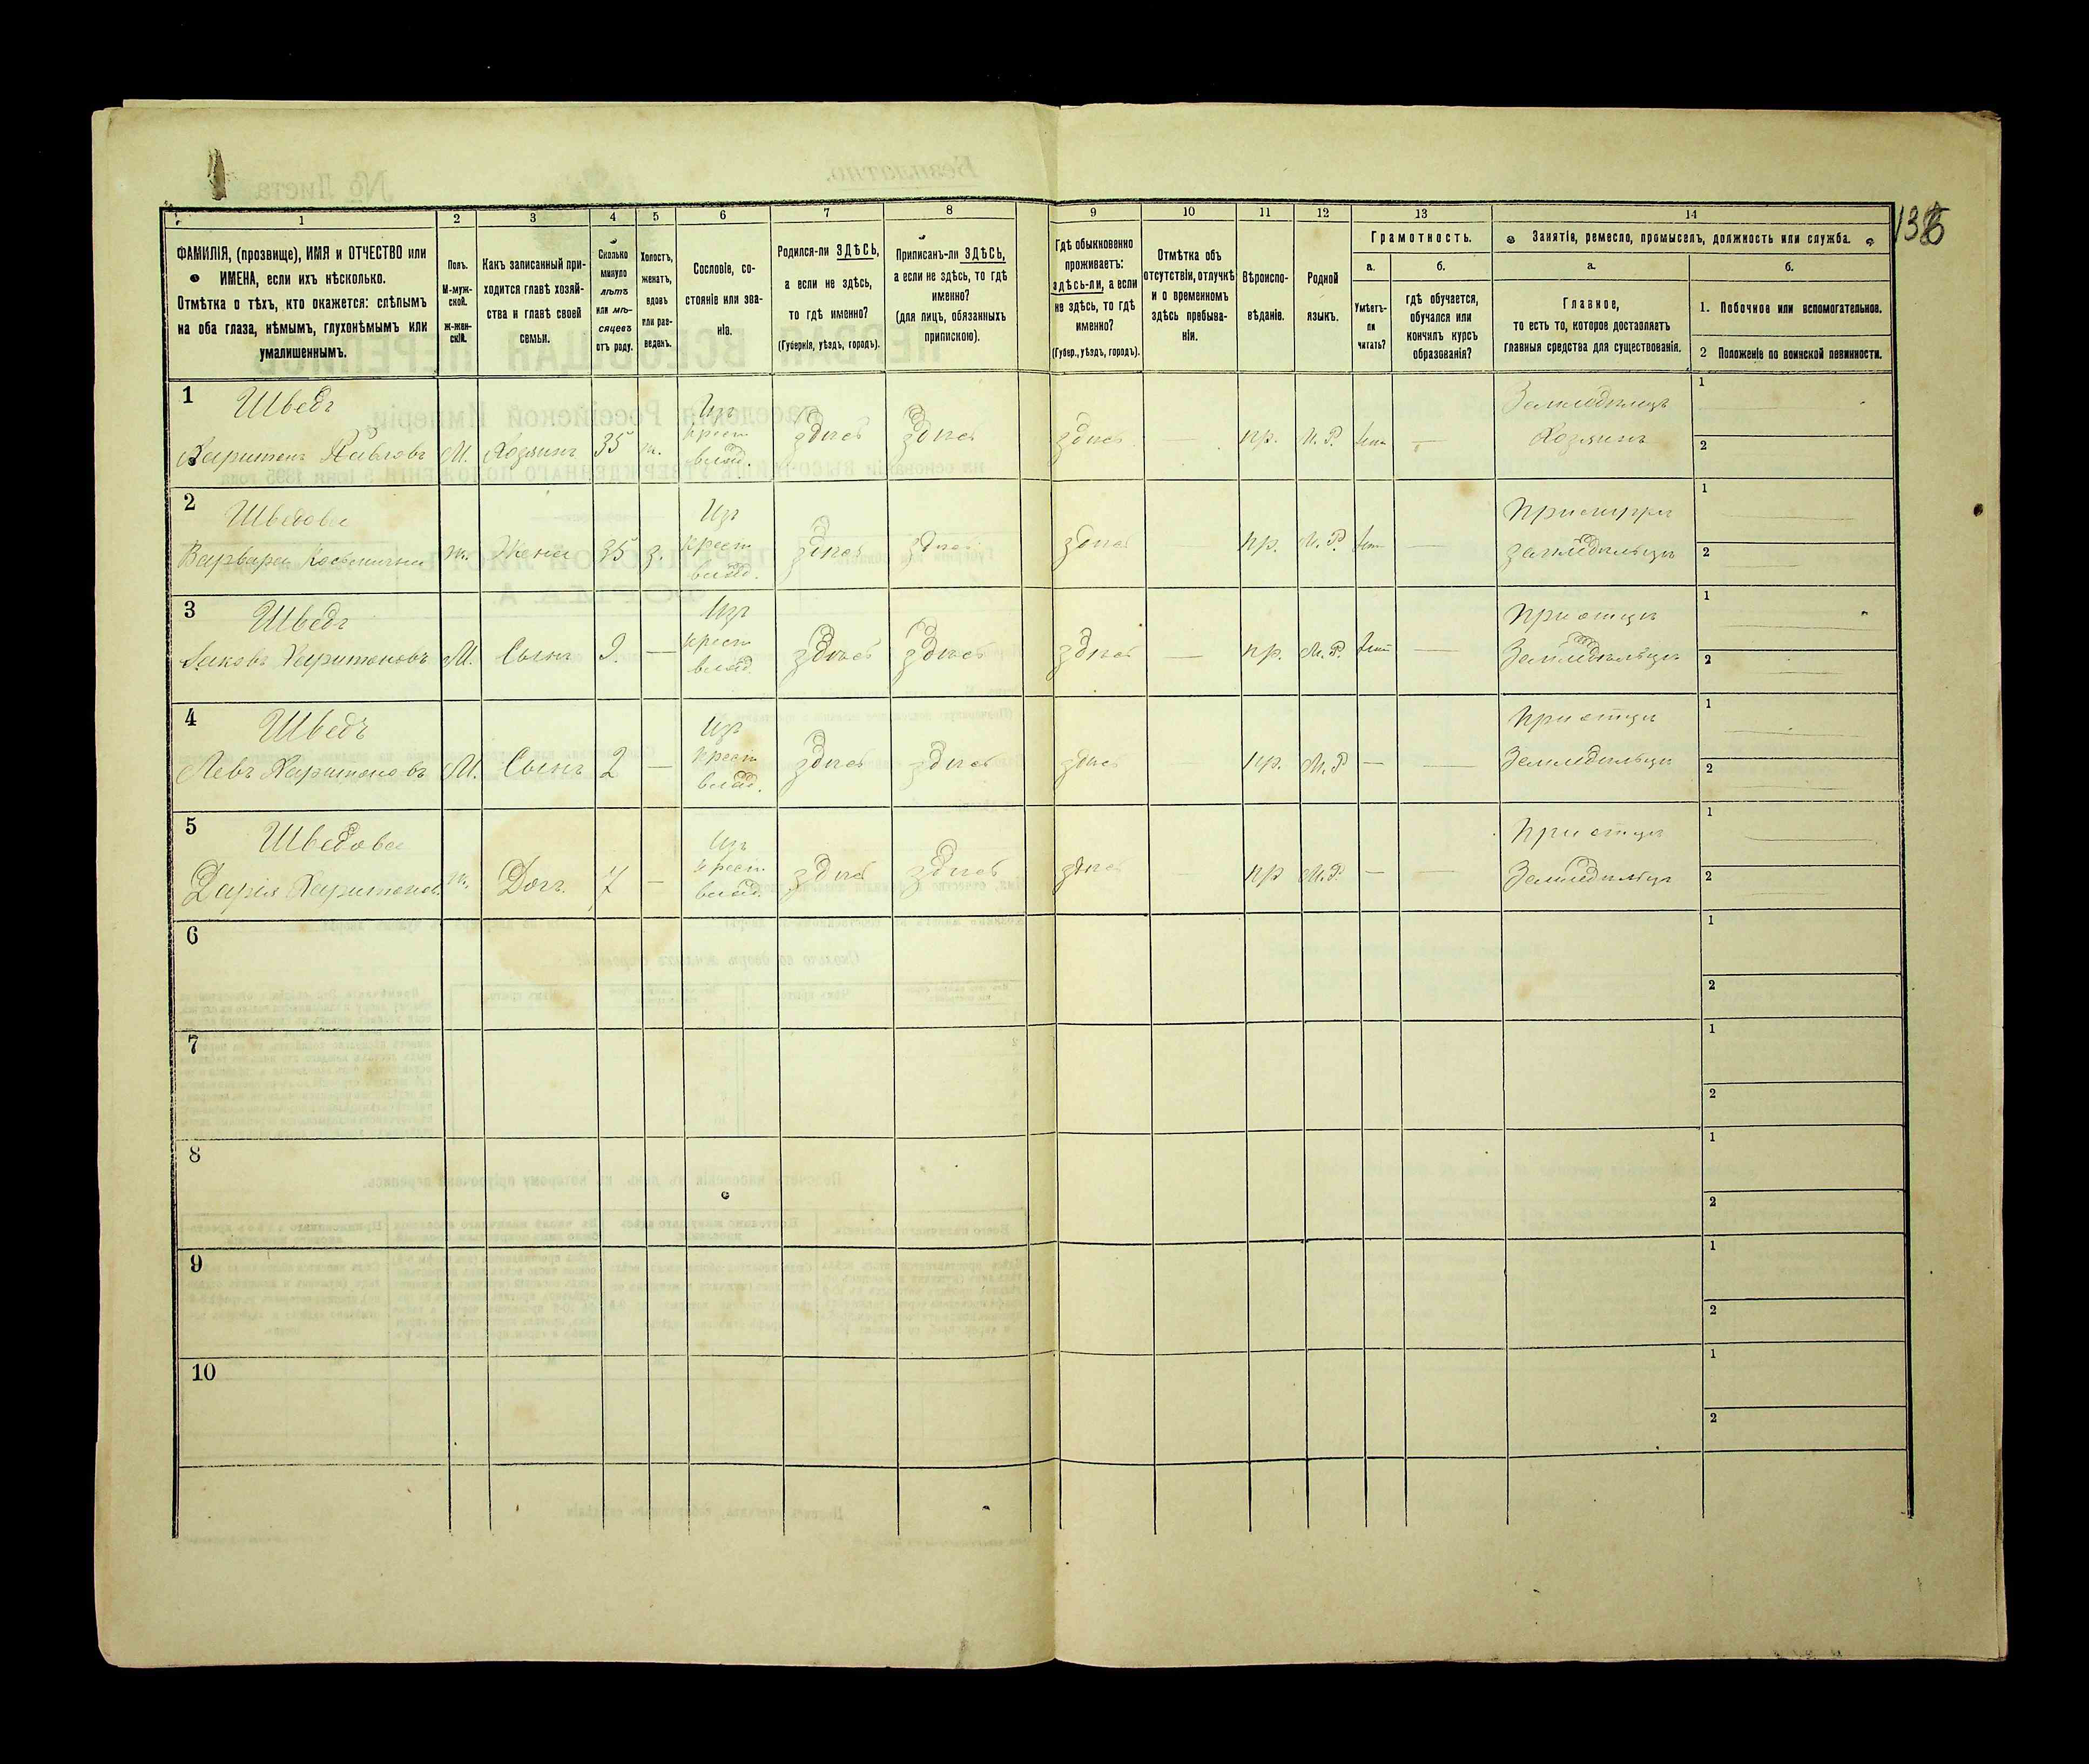 138
1 2 3 4 5 6 7 8 9 10 11 12 13 14
ФАМИЛІЯ, (прозвище), ИМЯ и ОТЧЕСТВО или
ИМЕНА, если ихъ нѣсколько.
Отмѣтка о тѣхъ, кто окажется: слѣпымъ
на оба глаза, нѣмымъ, глухонѣмымъ или
умалишеннымъ.
Полъ.
М-муж-
ской.
Ж-жен-
скій.
Какъ записанный при-
ходится главѣ хозяй-
ства и главѣ своей
семьи.
Сколько
минуло
лѣтъ
или мѣ-
сяцевъ
отъ роду.
Холостъ,
женатъ,
вдовъ
или раз-
веденъ.
Сословіе, со-
стояніе или зва-
ніе.
Родился-ли ЗДѢСЬ,
а если не здѣсь,
то гдѣ именно?
(Губернія, уѣздъ, городъ).
Приписанъ-ли ЗДѢСЬ,
а если не здѣсь, то гдѣ
именно?
(для лицъ, обязанныхъ
припискою).
Гдѣ обыкновенно
проживаетъ:
здѣсь-ли, а если
не здѣсь, то гдѣ
именно?
(Губер., уѣздъ, городъ).
Отмѣтка объ
отсутствіи, отлучкѣ
и о временномъ
здѣсь пребыва-
ніи.
Вѣроиспо-
вѣданіе.
Родной
языкъ.
Грамотность.
а.
Умѣетъ-
ли
читать?
б.
гдѣ обучается,
обучался или
кончилъ курсъ
образованія?
Занятіе, ремесло, промыселъ, должность или служба.
а.
Главное,
то есть то, которое доставляетъ
главныя средства для существованія.
б.
1. Побочное или вспомогательное.
2 Положеніе по воинской повинности.
1 Шведъ Изъ Земледѣлецъ 1
Харитонъ Павловъ М. Хозяинъ 35 ж. крест. здѣсь здѣсь здѣсь — пр. М.Р. — Хозяинъ 2
владѣ.
2 Шведова Изъ При мужѣ 1
Варвара Косьмична Ж. Жена 35 з. крест. здѣсь здѣсь здѣсь — пр. М.Р. — земледѣльцѣ 2
владѣ.
3 Шведъ Изъ При отцѣ 1
Яковъ Харитоновъ М. Сынъ 9. — крест. здѣсь здѣсь здѣсь — пр. М.Р. Земледѣльцѣ 2
владѣ.
4 Шведъ Изъ При отцѣ 1
Левъ Харитоновъ М. Сынъ 2 — крест. здѣсь здѣсь здѣсь — пр. М.Р — — Земледѣльцѣ 2
владѣ.
5 Шведова Изъ При отцѣ 1
Дарія Харитонов. ж. Доч. 7 — крест. здѣсь здѣсь здѣсь — пр М.Р. — — Земледѣльцѣ 2
владѣ.
6 1
2
7 1
2
8 1
2
9 1
2
10 1
2